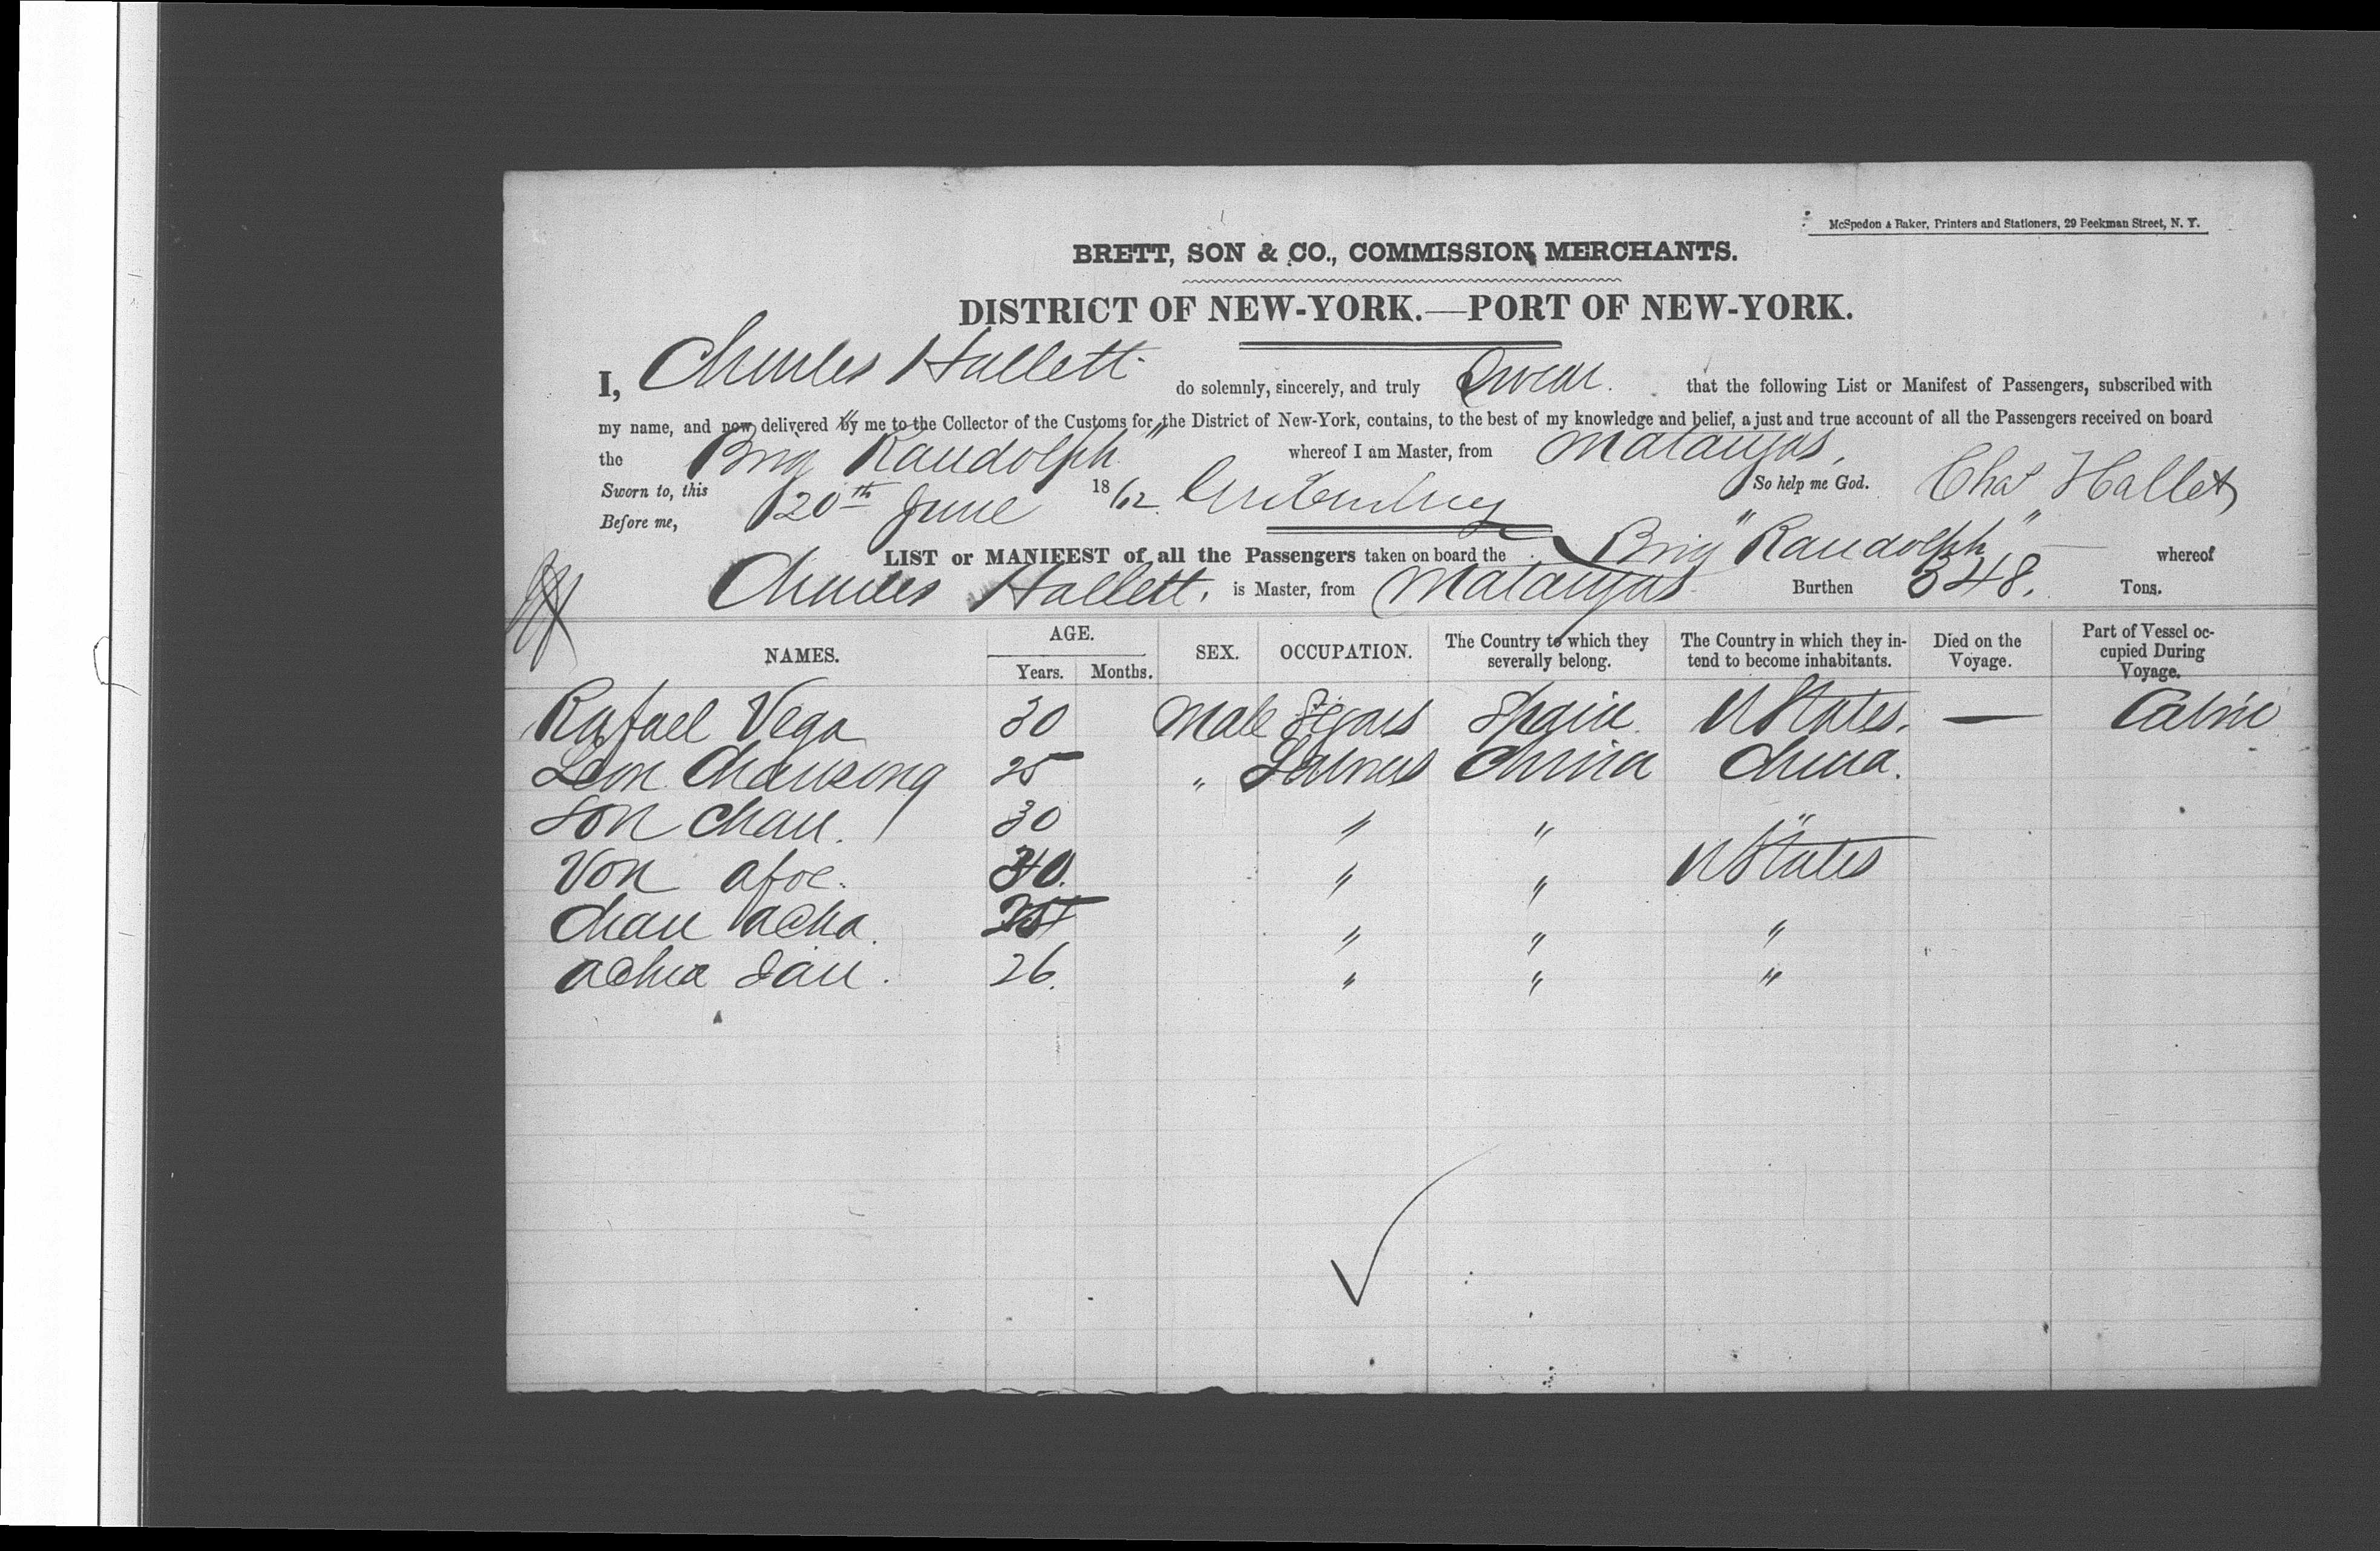 McSpedon & Baker, Printers and Stationers, 29 Beekman Street, N. Y.
BRETT, SON & CO., COMMISSION MERCHANTS.
DISTRICT OF NEW-YORK.—PORT OF NEW-YORK.
I, Charles Hallett do solemnly, sincerely, and truly Swear that the following List or Manifest of Passengers, subscribed with
my name, and now delivered by me to the Collector of the Customs for the District of New-York, contains, to the best of my knowledge and belief, a just and true account of all the Passengers received on board
the Brig "Randolph" whereof I am Master, from Matanzas,
Sworn to, this 20th June 1862 So help me God. Chas Hallett
Before me,
LIST or MANIFEST of all the Passengers taken on board the Brig "Randolph" whereof
Charles Hallett, is Master, from Matanzas Burthen 348. Tons.
NAMES. AGE. Years. Months. SEX. OCCUPATION. The Country to which they severally belong. The Country in which they intend to become inhabitants. Died on the Voyage. Part of Vessel occupied During Voyage.
Rafael Vega 30 Male Spain U States. — Cabin
Leon Chausong 25 " China China.
Son Chau. 30 " " "
Von afoe. 30. " " U States
Chau acha. " " "
achua 26. " " "